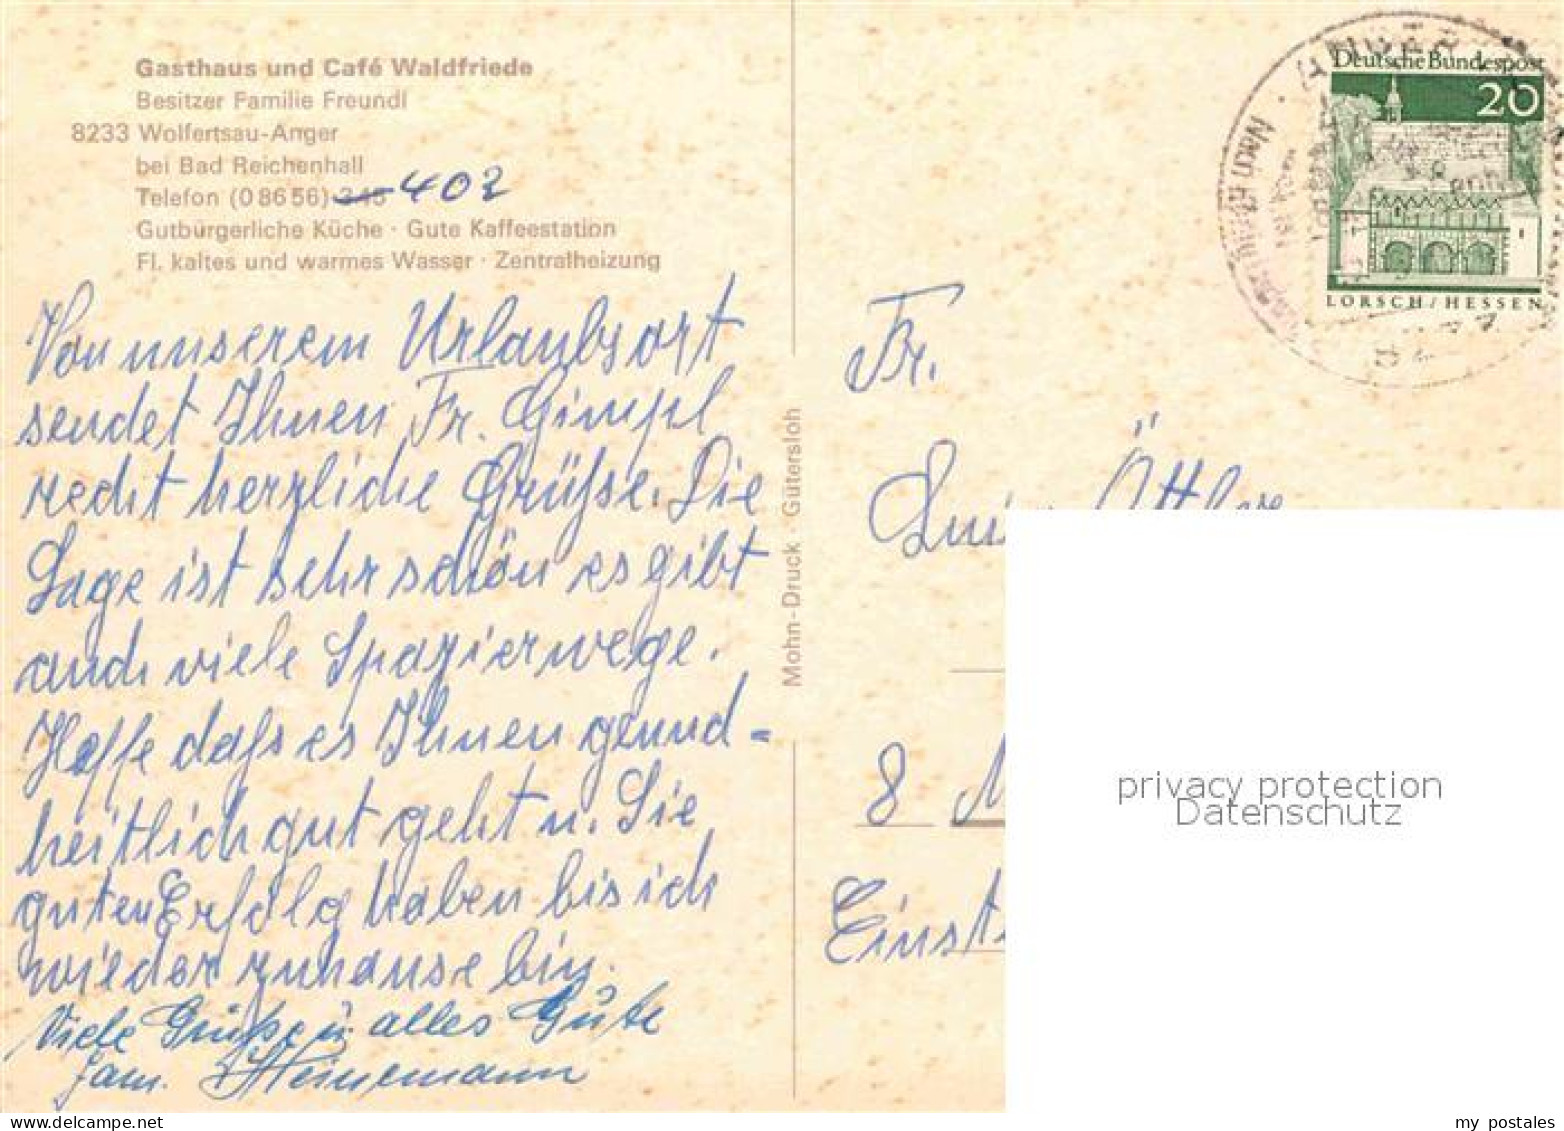 Gasthaus und Café Waldfriede
Besitzer Familie Freundl
8233 Wolfertsau-Anger
bei Bad Reichenhall
Telefon (08656) 345 402
Gutbürgerliche Küche · Gute Kaffeestation
Fl. kaltes und warmes Wasser · Zentralheizung
Von unserem Urlaubsort
sendet Ihnen Fr. Gimpl
recht herzliche Grüße. Die
Lage ist sehr schön es gibt
auch viele Spazierwege.
Hoffe daß es Ihnen gesund=
heitlich gut geht u. Sie
guten Erfolg haben bis ich
wieder zuhause bin.
Viele Grüße u. alles Gute
Fam. Heinemann
Mohn-Druck · Gütersloh
ANGER
Deutsche Bundespost
20
LORSCH/HESSEN
Fr.
8 M
Einst
privacy protection
Datenschutz
my postales